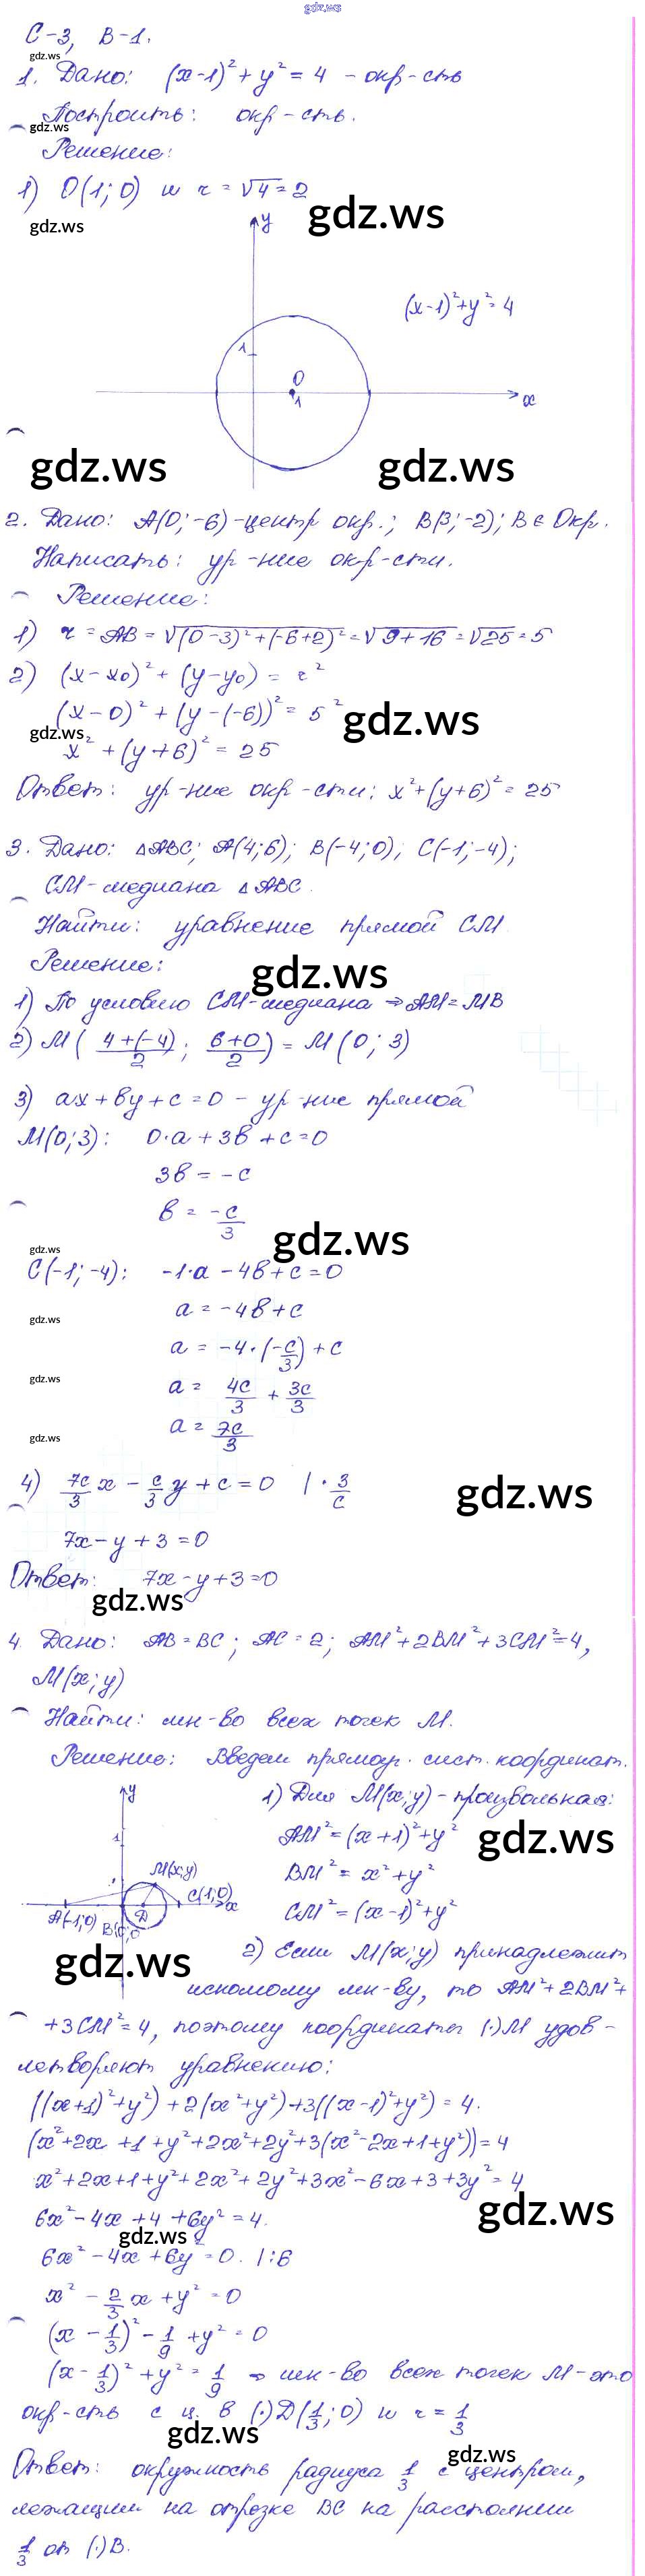 gdz.ws
С-3, В-1.
gdz.ws
1. Дано: (x-1)²+y²=4 - окр-сть
Построить: окр-сть.
gdz.ws
Решение:
1) O(1;0) и r=√4=2
gdz.ws
gdz.ws
y
(x-1)²+y²=4
1
O
1
x
gdz.ws gdz.ws
2. Дано: A(0;-6)-центр окр.; B(3;-2); B∈Окр.
Написать: ур-ние окр-сти.
Решение:
1) r=AB=√(0-3)²+(-6+2)²=√9+16=√25=5
2) (x-x₀)²+(y-y₀)=r²
(x-0)²+(y-(-6))²=5²
gdz.ws
gdz.ws
x²+(y+6)²=25
Ответ: ур-ние окр-сти: x²+(y+6)²=25
3. Дано: △ABC; A(4;6); B(-4;0); C(-1;-4);
CM-медиана △ABC.
Найти: уравнение прямой CM
Решение:
gdz.ws
1) По условию CM-медиана ⇒ AM=MB
2) M(4+(-4)/2; 6+0/2)=M(0;3)
3) ax+by+c=0 - ур-ние прямой
M(0;3): 0·a+3b+c=0
3b=-c
b=-c/3
gdz.ws
gdz.ws
C(-1;-4): -1·a-4b+c=0
a=-4b+c
gdz.ws
a=-4·(-c/3)+c
gdz.ws
a=4c/3+3c/3
a=7c/3
gdz.ws
4) 7c/3x-c/3y+c=0 |·3/c
gdz.ws
7x-y+3=0
Ответ: 7x-y+3=0
gdz.ws
4. Дано: AB=BC; AC=2; AM²+2BM²+3CM²=4,
M(x;y)
Найти: мн-во всех точек M.
Решение: Введем прямоуг. сист. координат.
y
1
M(x;y)
C(1;0)
x
A(-1;0) B(0;0 D
1) Для M(x;y)-произвольная:
AM²=(x+1)²+y²
gdz.ws
BM²=x²+y²
CM²=(x-1)²+y²
2) Если M(x;y) принадлежит
gdz.ws
искомому мн-ву, то AM²+2BM²+
+3CM²=4, поэтому координаты (·)M удов-
летворяют уравнению:
((x+1)²+y²)+2(x²+y²)+3((x-1)²+y²)=4.
(x²+2x+1+y²+2x²+2y²+3(x²-2x+1+y²))=4
x²+2x+1+y²+2x²+2y²+3x²-6x+3+3y²=4
gdz.ws
6x²-4x+4+6y²=4.
gdz.ws
6x²-4x+6y²=0. |:6
x²-2/3x+y²=0
(x-1/3)²-1/9+y²=0
(x-1/3)²+y²=1/9 ⇒ мн-во всех точек M-это
окр-сть с ц. в (·)D(1/3;0) и r=1/3
gdz.ws
gdz.ws
Ответ: окружность радиуса 1/3 с центром,
лежащим на отрезке BC на расстоянии
1/3 от (·)B.